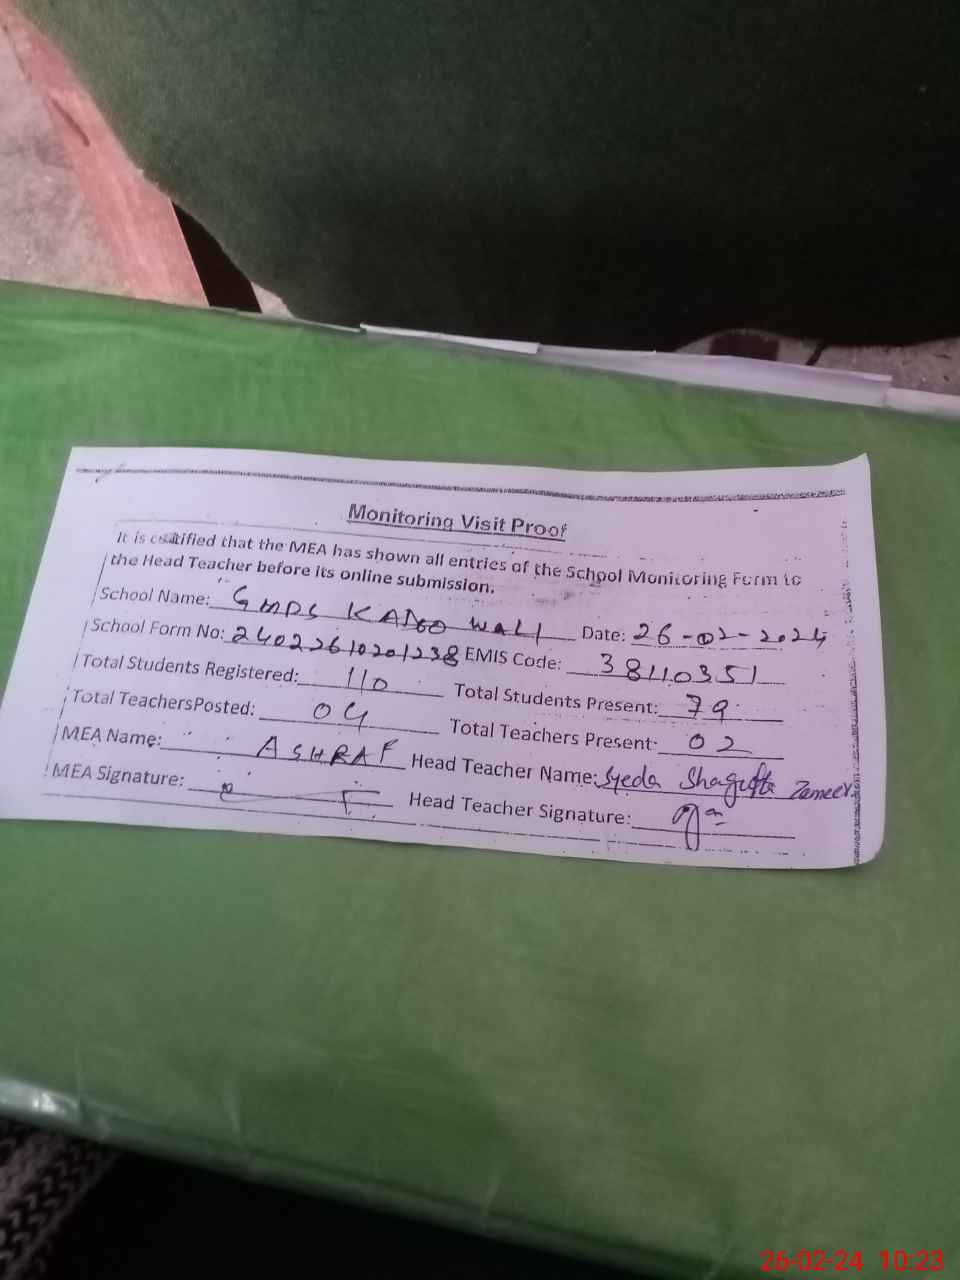 Monitoring Visit Proof
It is certified that the MEA has shown all entries of the School Monitoring Form to
the Head Teacher before its online submission.
School Name: GMPS KADOO WALI Date: 26-02-2024
School Form No: 24022610201238 EMIS Code: 38110351
Total Students Registered: 110 Total Students Present: 79
Total TeachersPosted: 04 Total Teachers Present: 02
MEA Name: ASHRAF Head Teacher Name: Syeda Shagufta Zameer
MEA Signature: Head Teacher Signature:
26-02-24 10:23